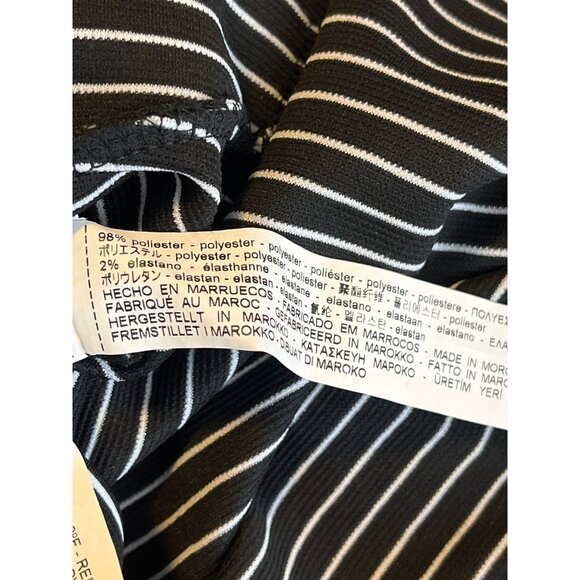 98% poliester - polyester - polyester - polyester - poliéster - polyester - polyestere - ΠΟΛΥΕΣ
ポリエステル - polyester - polyester - polyester - polyester - 聚酯纤维 - 폴리에스터 - poliester
2% elastano - élasthanne - elastan - elastane - elastano - elastaan - elastano - ΕΛΑ
ポリウレタン - elastan - elastan - elastan - elastan - 氨纶 - 엘라스탄 - elastan
HECHO EN MARRUECOS - FABRICADO EM MARROCOS - MADE IN MORO
FABRIQUÉ AU MAROC - GEFABRICEERD IN MAROKKO - FATTO IN MARO
HERGESTELLT IN MAROKKO - ΚΑΤΑΣΚΕΥΗ ΜΑΡΟΚΟ - ÜRETİM YERİ
FREMSTILLET I MAROKKO - DIBUAT DI MAROKO
°F - RE